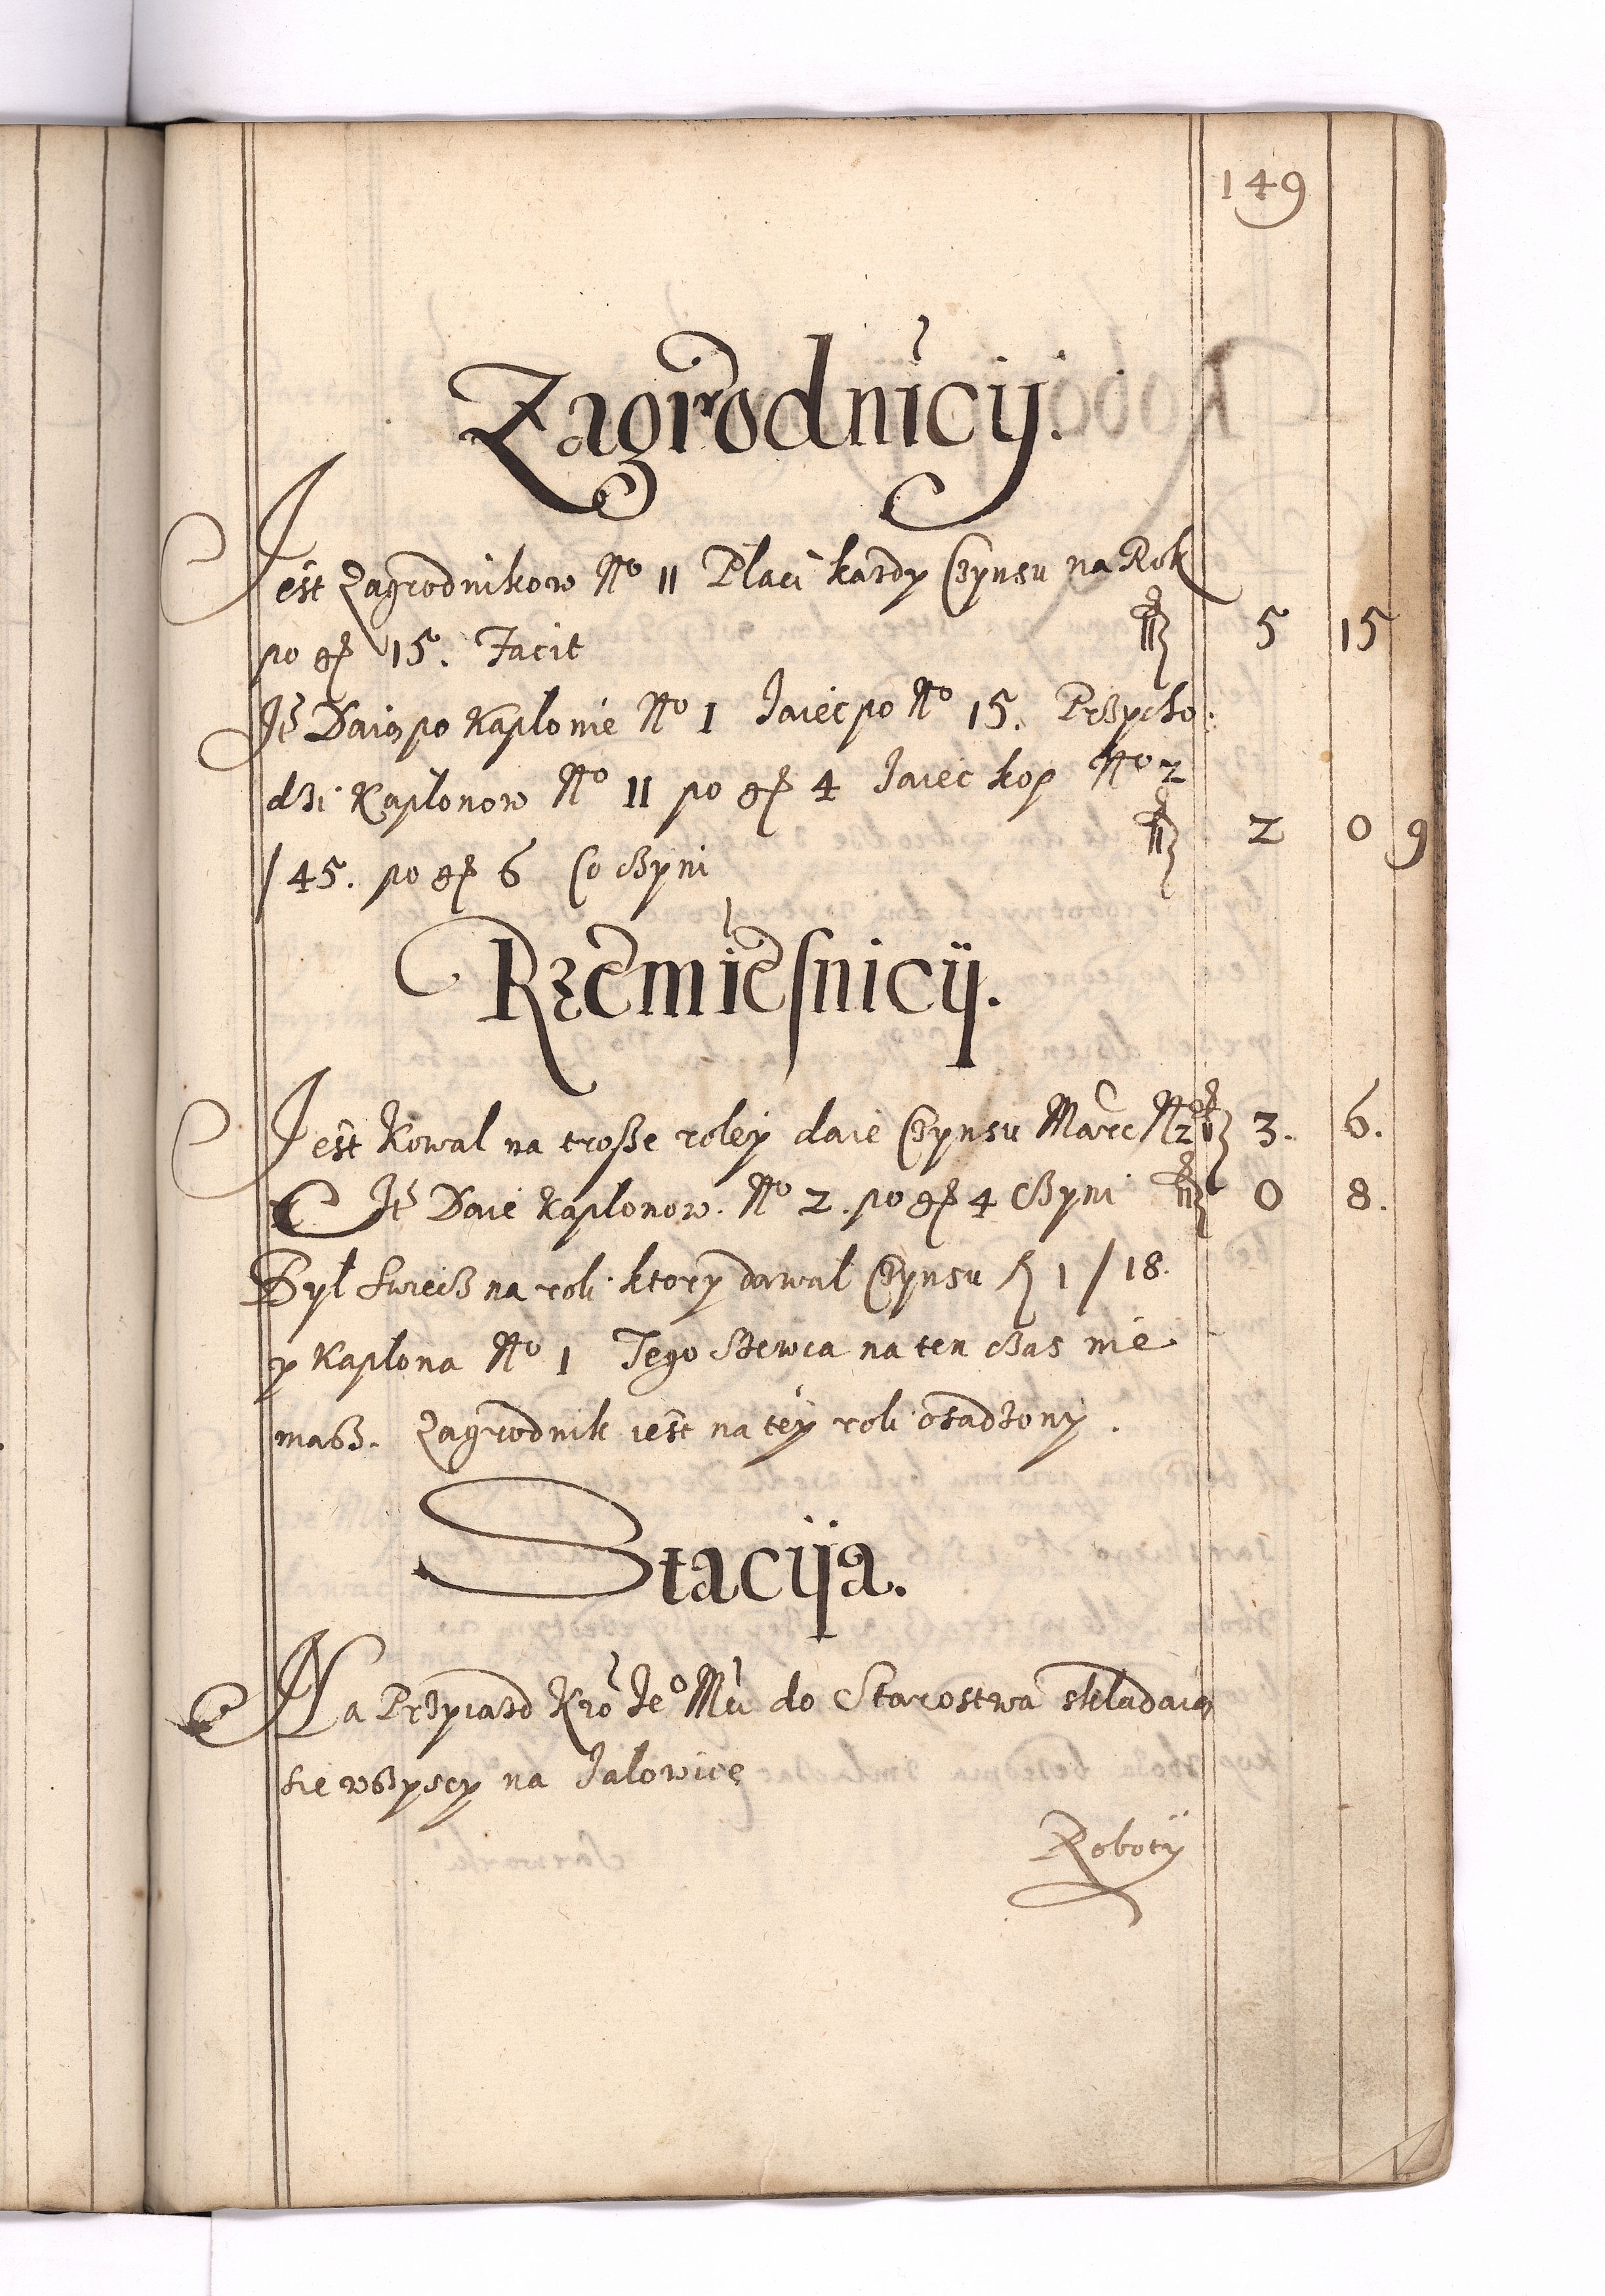 149
Zagrodnicÿ.
Jest Zagrodnikow No 11 Płaci kazdy Czynsu na Rok
po gr 15. Facit fl 5 15
It Daią po Kapłonie No 1 Jaiec po No 15. Przycho:
dzi Kapłonow No 11 po gr 4 Jaiec kop No 2
/45. po gr 6 Co czyni fl 2 0 9
Rzemiesnicÿ.
Jest Kowal na trosze roley daie Czynsu Marc No 2 fl 3. 6.
It Daie Kapłonow. No 2. po gr 4 czyni fl 0 8.
Był Swiecz na roli ktory dawał Czynsu fl 1 / 18.
y Kapłona No 1 Tego Szewca na ten czas nie
masz. Zagrodnik iest na tey roli osadzony.
Stacÿa.
Na Przyiazd Kro Jeo Mci do Starostwa składaią
sie wszyscy na Jałowicę
Robotÿ